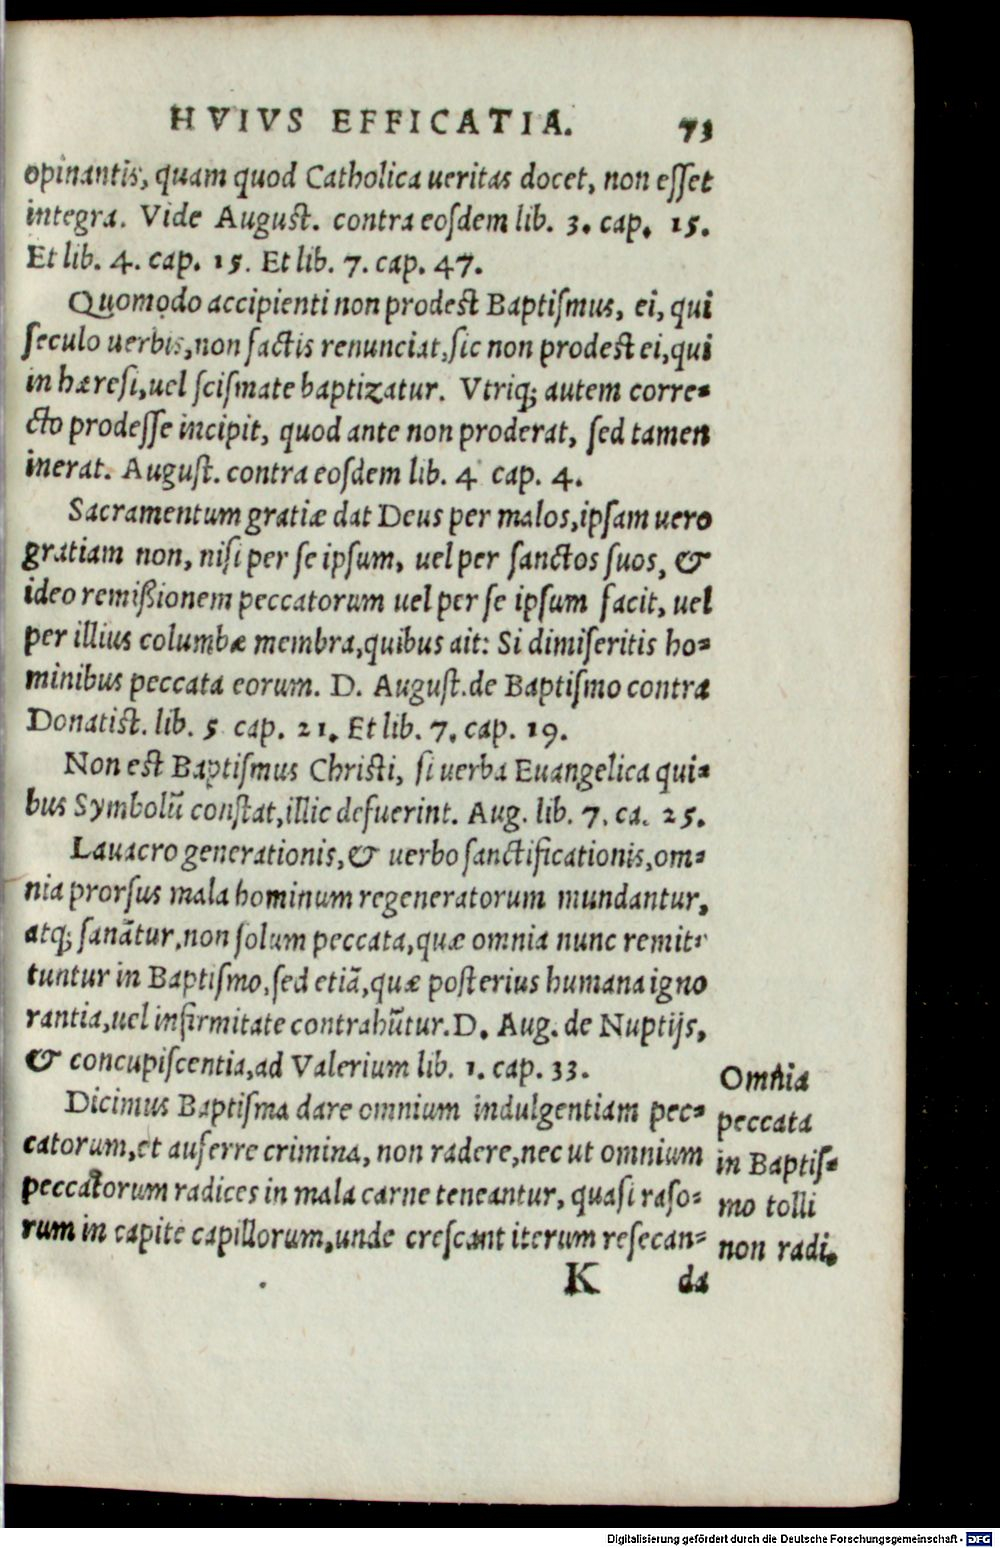 HVIVS EFFICATIA. 73
opinantis, quam quod Catholica ueritas docet, non eſſet
integra. Vide Auguſt. contra eoſdem lib. 3. cap. 15.
Et lib. 4. cap. 15. Et lib. 7. cap. 47.
Quomodo accipienti non prodeſt Baptiſmus, ei, qui
ſeculo uerbis, non factis renunciat, ſic non prodeſt ei, qui
in hæreſi, uel ſciſmate baptizatur. Vtriq; autem corre=
cto prodeſſe incipit, quod ante non proderat, ſed tamen
inerat. Auguſt. contra eoſdem lib. 4 cap. 4.
Sacramentum gratiæ dat Deus per malos, ipſam uero
gratiam non, niſi per ſe ipſum, uel per ſanctos ſuos, &
ideo remißionem peccatorum uel per ſe ipſum facit, uel
per illius columbæ membra, quibus ait: Si dimiſeritis ho=
minibus peccata eorum. D. Auguſt. de Baptiſmo contra
Donatiſt. lib. 5 cap. 21. Et lib. 7. cap. 19.
Non eſt Baptiſmus Chriſti, ſi uerba Euangelica qui=
bus Symbolū conſtat, illic defuerint. Aug. lib. 7. ca. 25.
Lauacro generationis, & uerbo ſanctificationis, om=
nia prorſus mala hominum regeneratorum mundantur,
atq; ſanātur, non ſolum peccata, quæ omnia nunc remit=
tuntur in Baptiſmo, ſed etiā, quæ poſterius humana igno
rantia, uel infirmitate contrahūtur. D. Aug. de Nuptijs,
& concupiſcentia, ad Valerium lib. 1. cap. 33.
Dicimus Baptiſma dare omnium indulgentiam pec=
catorum, et auferre crimina, non radere, nec ut omnium
peccatorum radices in mala carne teneantur, quaſi raſo=
rum in capite capillorum, unde creſcant iterum reſecan=
Omnia
peccata
in Baptiſ=
mo tolli
non radi.
K da
Digitalisierung gefördert durch die Deutsche Forschungsgemeinschaft - DFG